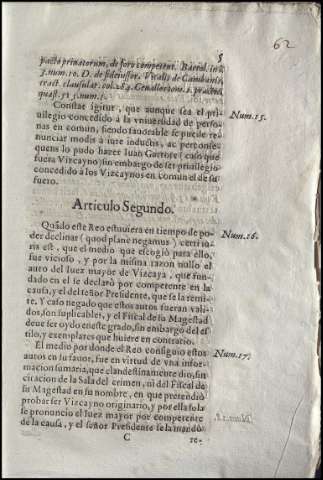 8
62
pacto priuatorum, de foro competen. Bartol. in l.
3. num. 10. D. de fideiussor. Vitalis de Cambanis,
tract. clausular. col. 284. Cenallos com. 1. practic.
quæst. 51. num. 1.
Constae igitur, que aunque sea el pri-
uilegio concedido à la vniuersidad de perso-
nas en comun, siendo fauorable se puede re-
nunciar modis à iure inductis, ac per conse-
quens lo pudo hazer Iuan Garrote (caso que
fuera Vizcayno) sin embargo de ser priuilegio
concedido à los Vizcaynos en comun el de su
fuero.
Num. 15.
Articulo Segundo.
Quãdo este Reo estuuiera en tiempo de po-
der declinar (quod plane negamus) certiu-
ris est, que el medio que escogiò para ello,
fue vicioso, y por la misma razon nullo el
auto del Iuez mayor de Vizcaya, que fun-
dado en el se declarò por competente en la
causa, y el del señor Presidente, que se la remi-
te. Y caso negado que estos autos fueran vali-
dos, son suplicables, y el Fiscal de su Magestad
deue ser oydo en este grado, sin embargo del es-
tilo, y exemplares que huuiere en contrario.
Num. 16.
El medio por donde el Reo consiguio estos
autos en su fauor, fue en virtud de vna infor-
macion sumaria, que clandestinamente dio, sin
citacion de la Sala del crimen, ni del Fiscal de
su Magestad en su nombre, en que pretendiò
probar ser Vizcayno originario, y por ella sola
se pronunciò el Iuez mayor por competente
de la causa, y el señor Presidente se la mandò
Num. 17.
C
re-